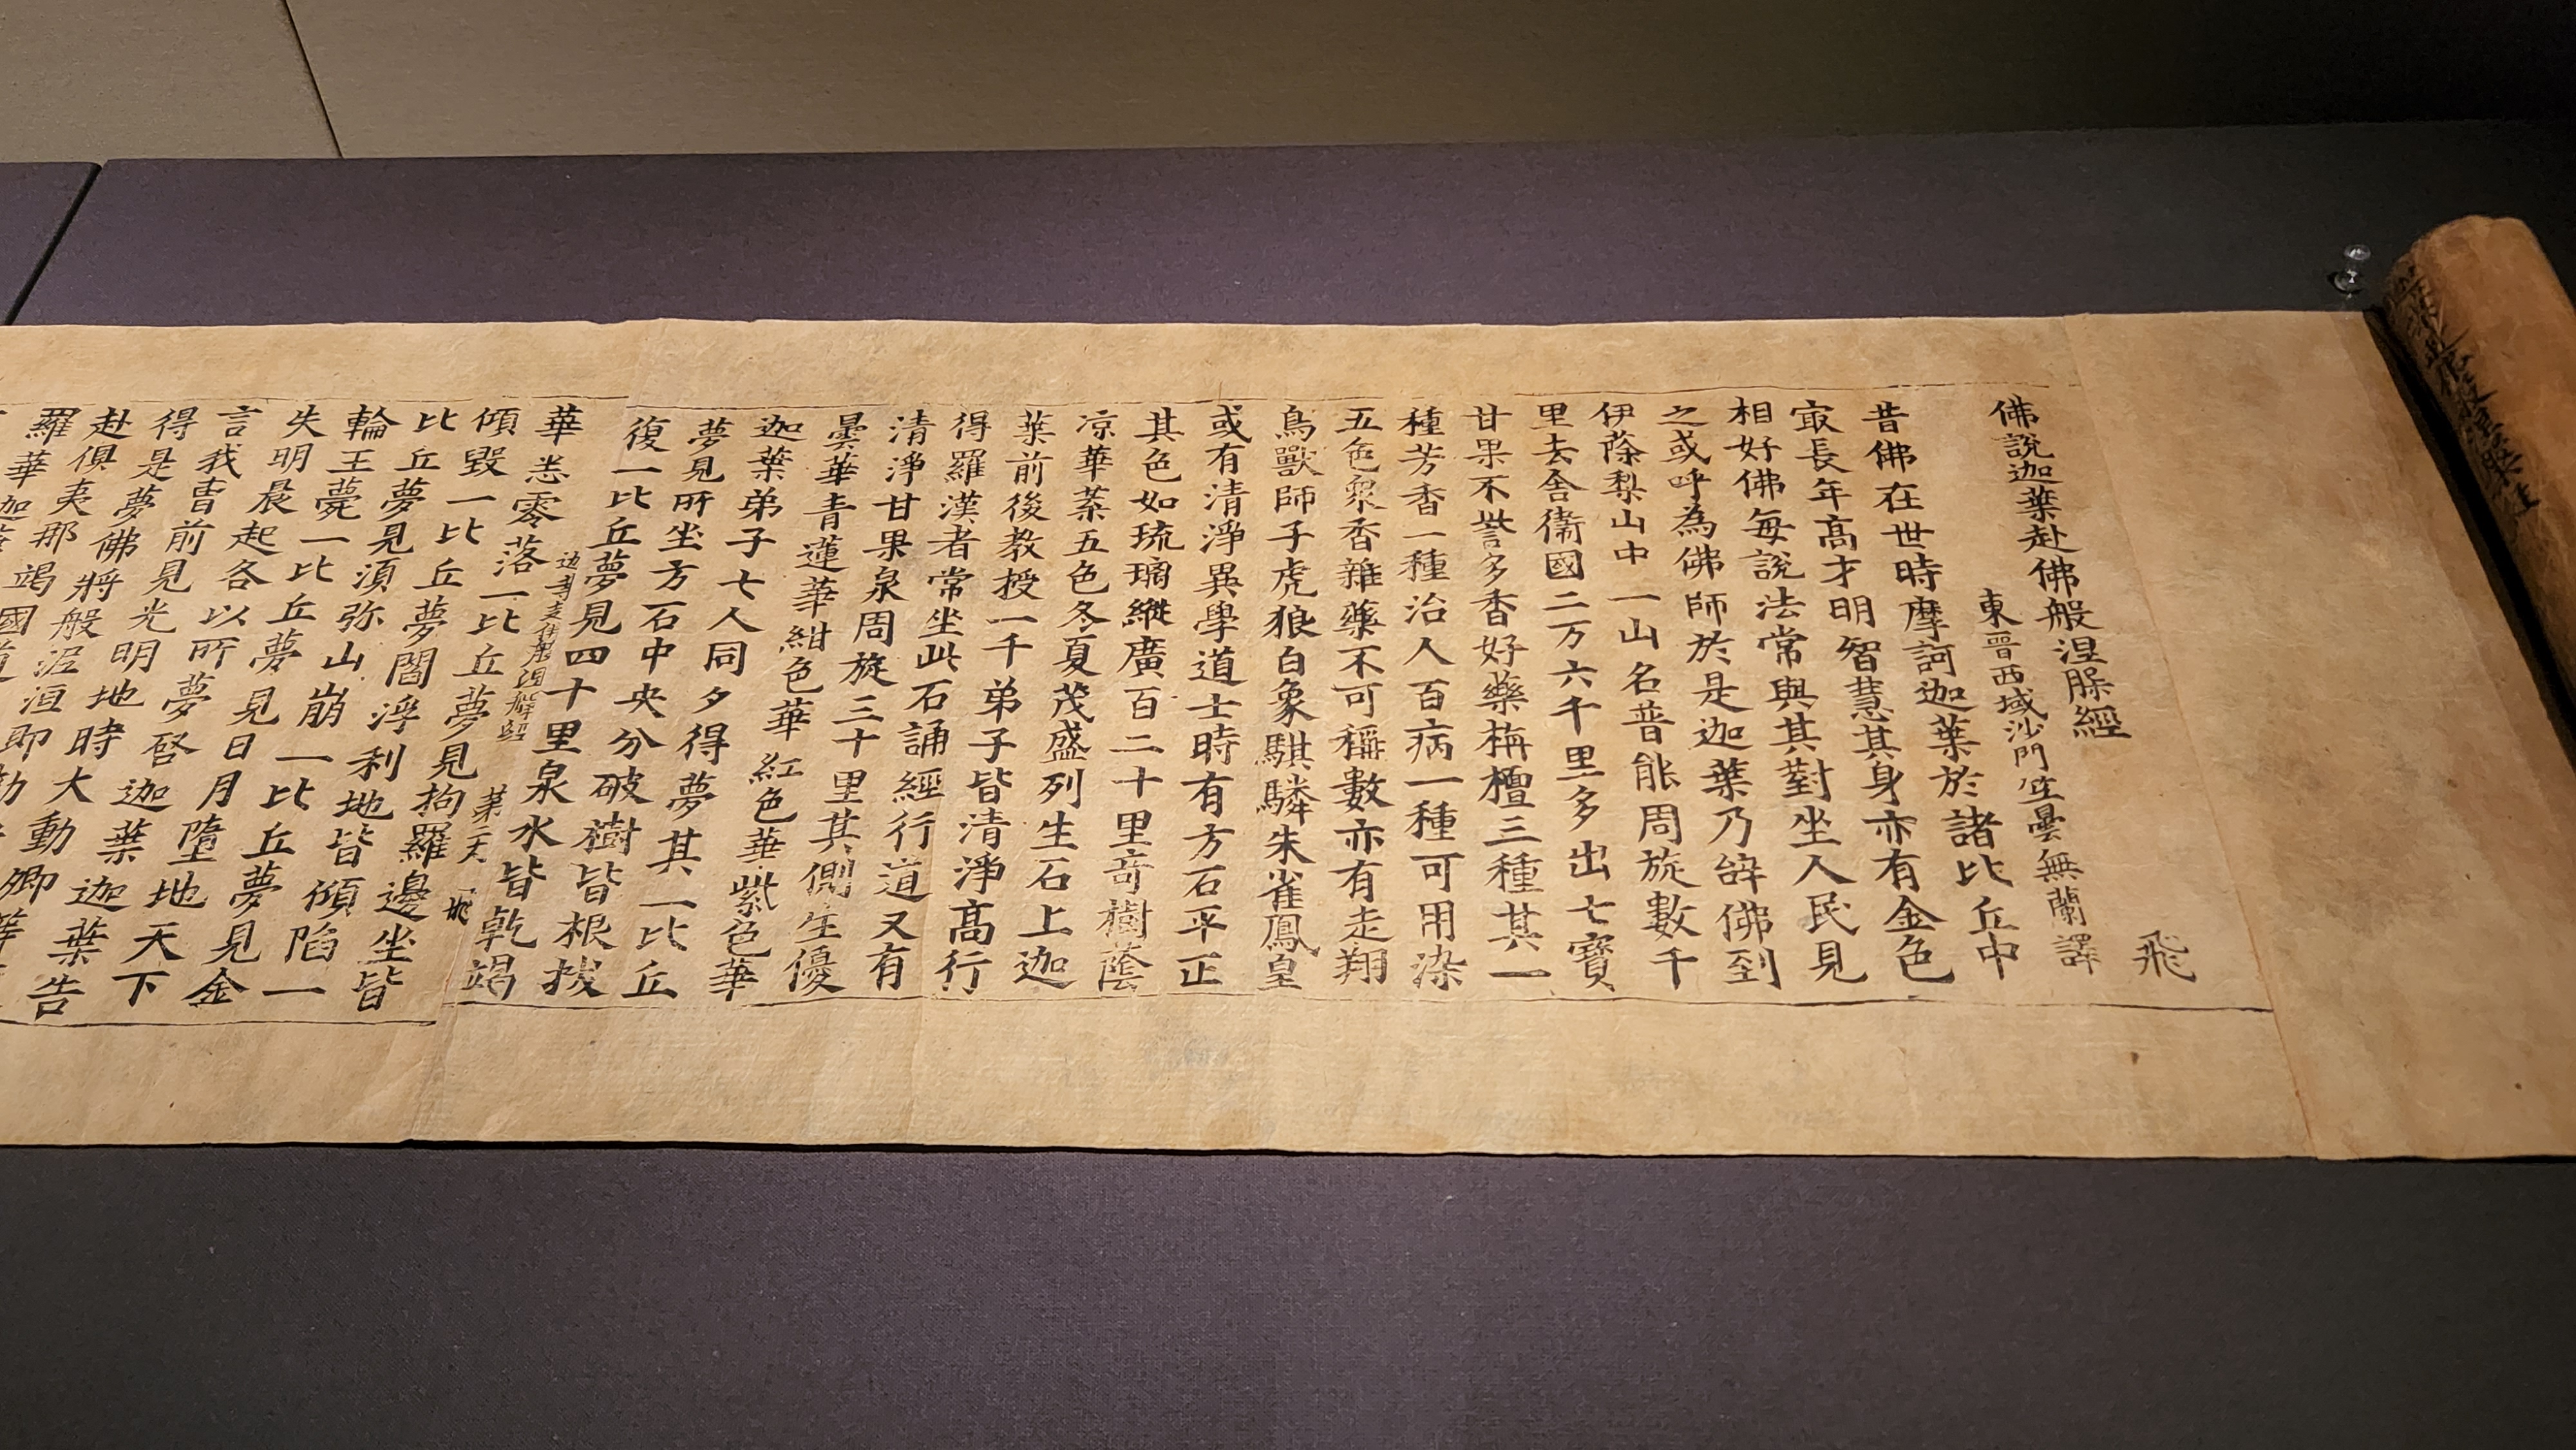 佛說迦葉赴佛般涅槃經
飛
東晉西域沙門竺曇無蘭譯
昔佛在世時摩訶迦葉於諸比丘中
冣長年高才明智慧其身亦有金色
相好佛每說法常與其對坐人民見
之或呼為佛師於是迦葉乃辝佛到
伊蔯梨山中一山名普能周旋數千
里去舍衞國二万六千里多出七寶
甘果不訾多香好藥栴檀三種其一
種芳香一種治人百病一種可用染
五色衆香雜藥不可稱數亦有走翔
鳥獸師子虎狼白象騏驎朱雀鳳皇
或有清淨異學道士時有方石平正
其色如琉璃縱廣百二十里竒樹蔭
凉華葉五色冬夏茂盛列生石上迦
葉前後教授一千弟子皆清淨高行
得羅漢者常坐此石誦經行道又有
清淨甘果泉周旋三十里其側生優
曇華青蓮華紺色華紅色華紫色華
迦葉弟子七人同夕得夢其一比丘
夢見所坐方石中央分破樹皆根拔
復一比丘夢見四十里泉水皆乾竭
華悉零落一比丘夢見拘羅邊坐皆
第二
飛
傾毀一比丘夢閻浮利地皆傾陷一
比丘夢見湏弥山崩一比丘夢見金
輪王薨一比丘夢見日月墮地天下
失明晨起各以所夢啓迦葉迦葉告
言我曺前見光明地時大動卿等
得是夢佛將般泥洹即勑
赴俱夷那竭國
羅華迦葉